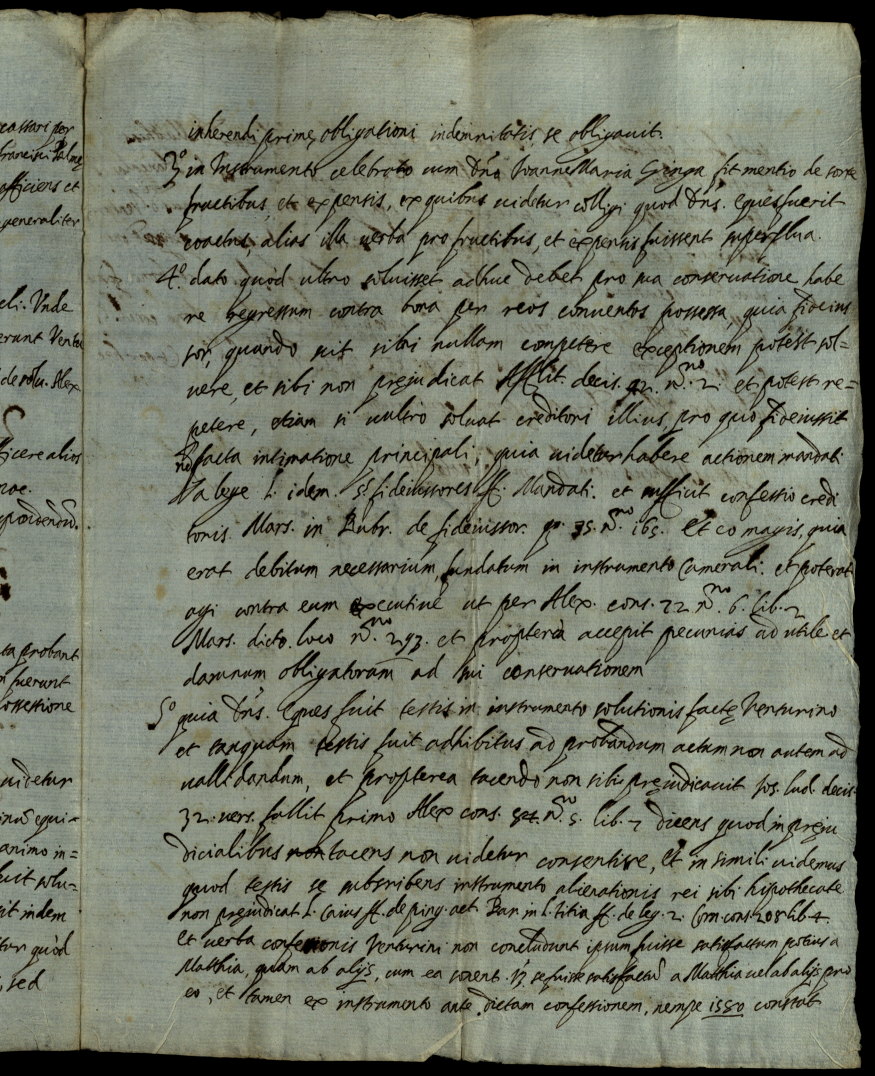 cassari per
francisci Palmę
officiens et
generaliter
eli. Vnde
erunt Ventu
de solu. Alex
ficere alios
ta probant
n fuerunt
ossessione
uidetur
animo in=
uit solu-
it indem
tur quòd
, sed
inherendi primę obligationi indemnitatis se obligauit.
3º in Instrumento celebrato cum Dño Ioanne Maria Ginga fit mentio de sorte
fructibus et expensis, ex quibus uidetur colligi quod Dñs. Eques fuerit
coactus, alias illa uerba pro fructibus, et expensis fuissent superflua.
4º. dato quòd ultro soluisset adhuc debet pro sua conseruatione habe
re regressum contra bona per reos conuentos possessa, quia fideius
sor, quando scit sibi nullam competere exceptionem potest sol=
uere, et sibi non pręiudicat Afflit. decis. 42. nº. 2. et potest re=
petere, etiam si ultro soluat creditori illius, pro quo fideiussit
facta intimatione principali, quia uidetur habere actionem mandati
a lege l. idem. §. fideiussores ff. Mandati. et sufficit confessio credi
toris Mars. in Rubr. de fideiussor. 35. nº. 165. Et eo magis, quia
erat debitum necessarium, fundatum in instrumento Camerali. et poterat
agi contra eum executiuè ut per Alex. cons. 22 nº. 6. lib. 2
Mars. dicto. loco nº. 297. et propterea accepit pecunias ad utile et
damnum obligatorum ad sui conseruationem
5º quia Dñs. Eques fuit testis in instrumento solutionis factę Venturino
et tanquam testis fuit adhibitus ad probandum actum non autem ad
uallidandum, et propterea tacendo non sibi pręiudicauit Jos. Lud. decis.
32. uers. fallit primo Alex cons. nº. 5. lib. 7 dicens quod in pręiu
dicialibus tacens non uidetur consentire, Et in simili uidemus
quod testis se subscribens instrumento alienationis rei sibi hypothecatę
non pręiudicat l. Caius ff. de ping. act. Bar. in l. Titia ff. de leg. 2. Corn. cons. 208 lib. 4.
Et uerba confessionis Venturini non concludunt ipsum fuisse satisfactum potius a
Matthia, quàm ab alijs, cum ea sonent. se fuisse satisfactū a Matthia uel ab alijs pro
eo, et tamen ex instrumento ante dictam confessionem, nempe 1550 constat